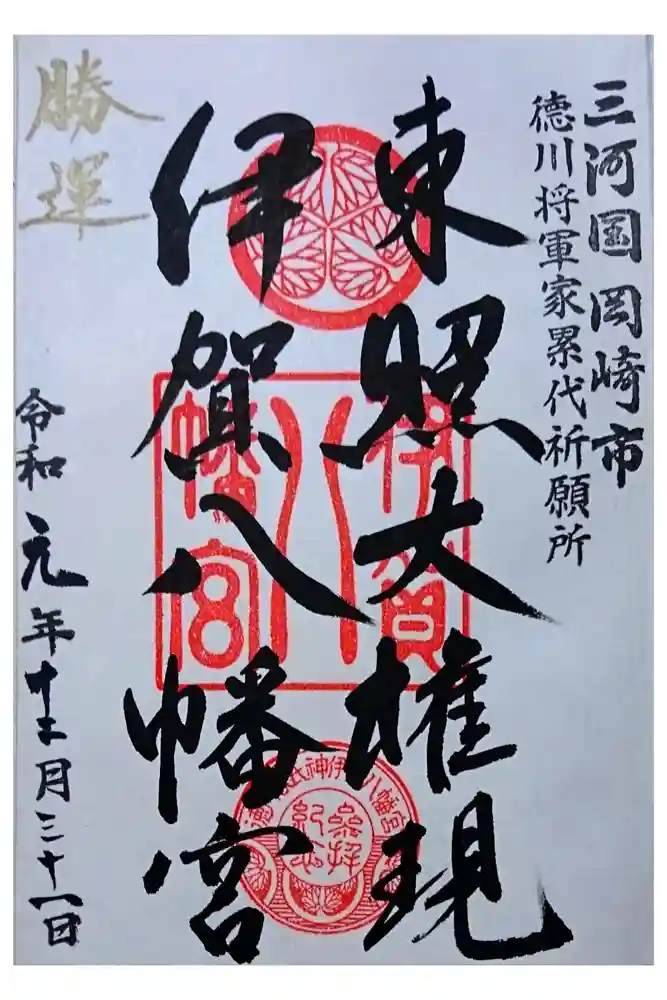 三河国 岡崎市
徳川将軍家累代祈願所
東照大権現
伊賀八幡宮
勝運
令和元年十二月三十一日
伊賀
八
幡宮
参拝
紀念